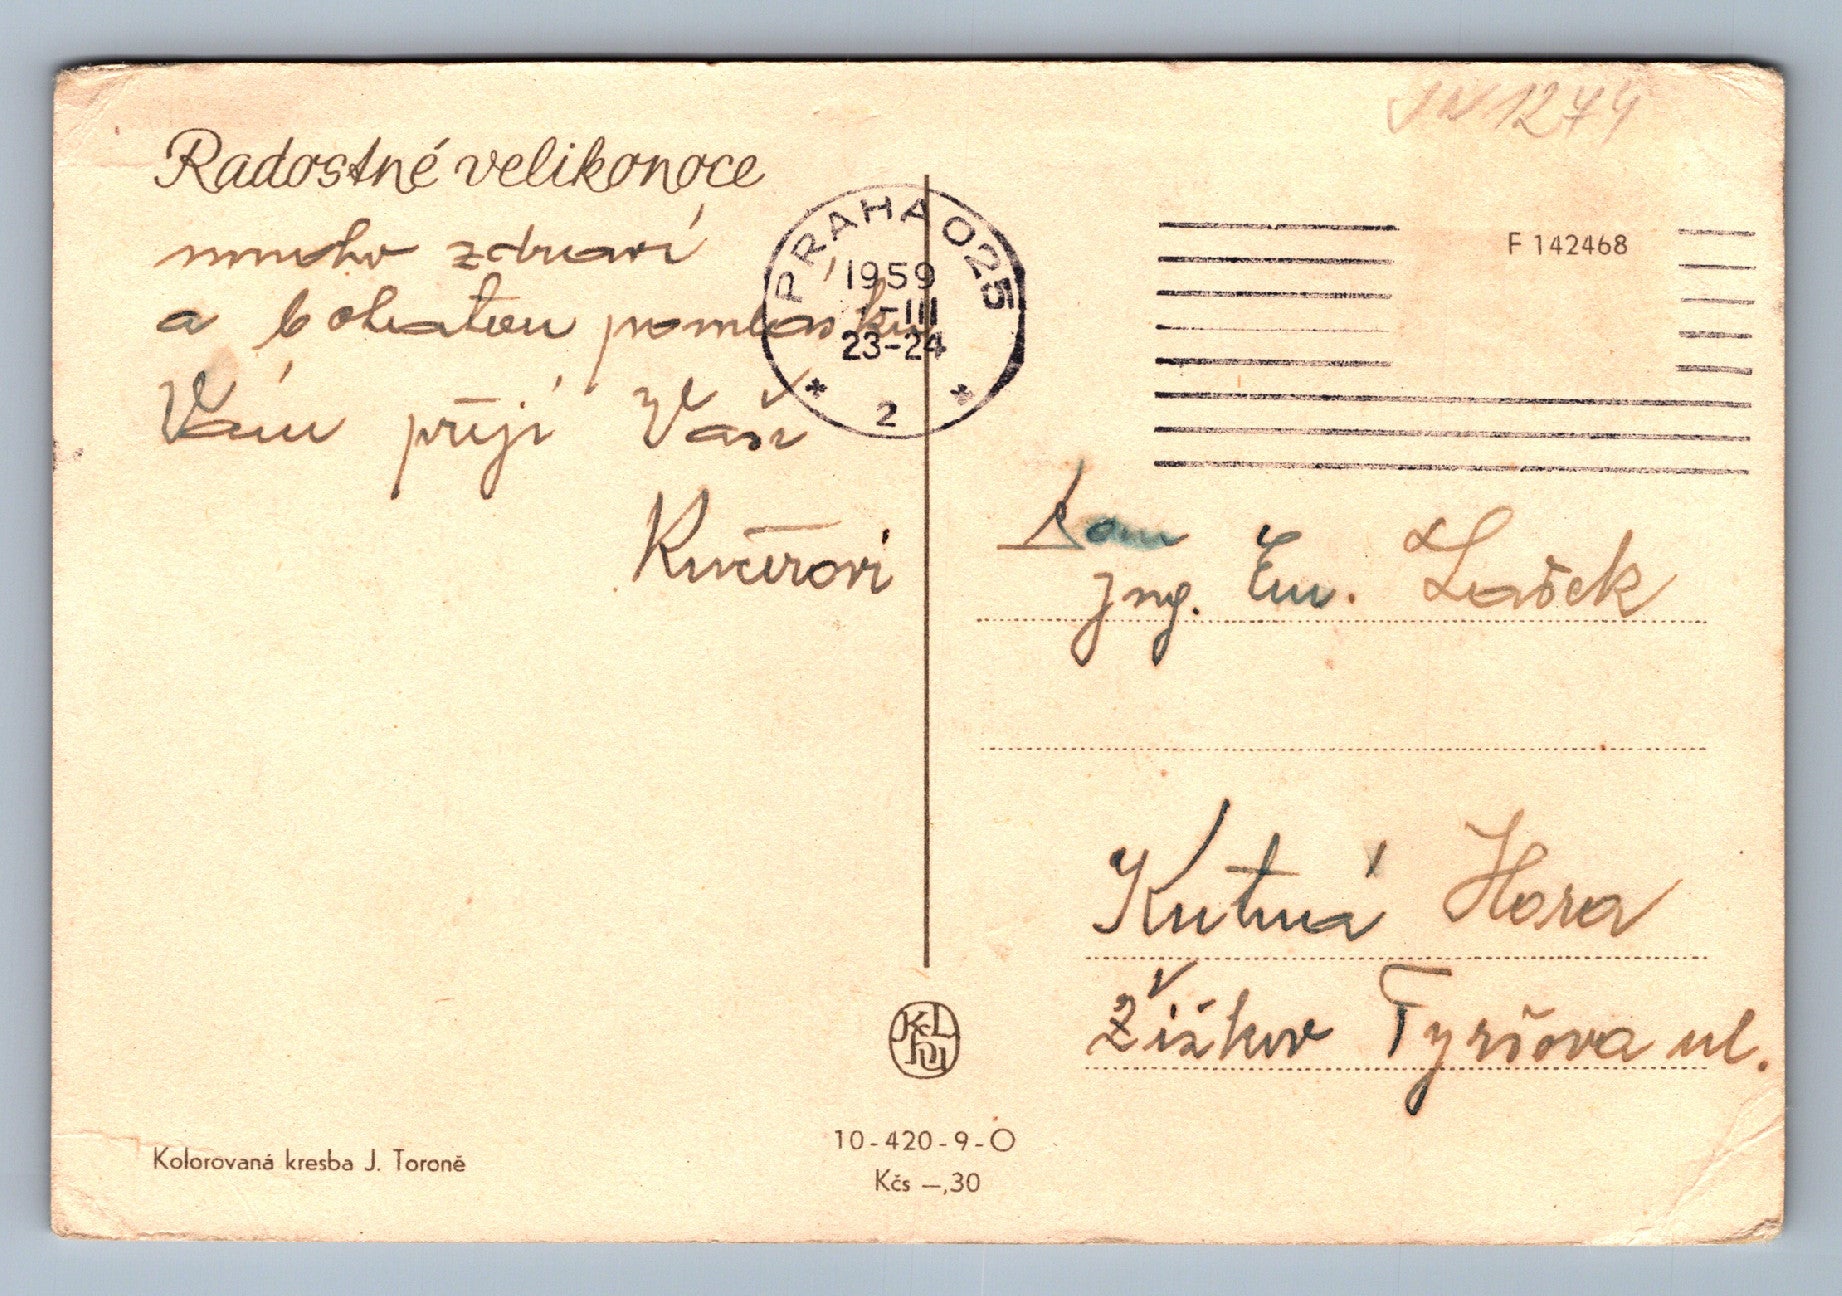 Radostné velikonoce
mnoho zdraví
a bohatou pomlásku
Vám přejí Vaši
Kučerovi
PRAHA 025
1959
-III
23-24
2
1274
F 142468
Ing. Em. Lašek
Kutná Hora
Žižkov Tyršova ul.
Kolorovaná kresba J. Toroně
10-420-9-O
Kčs —,30